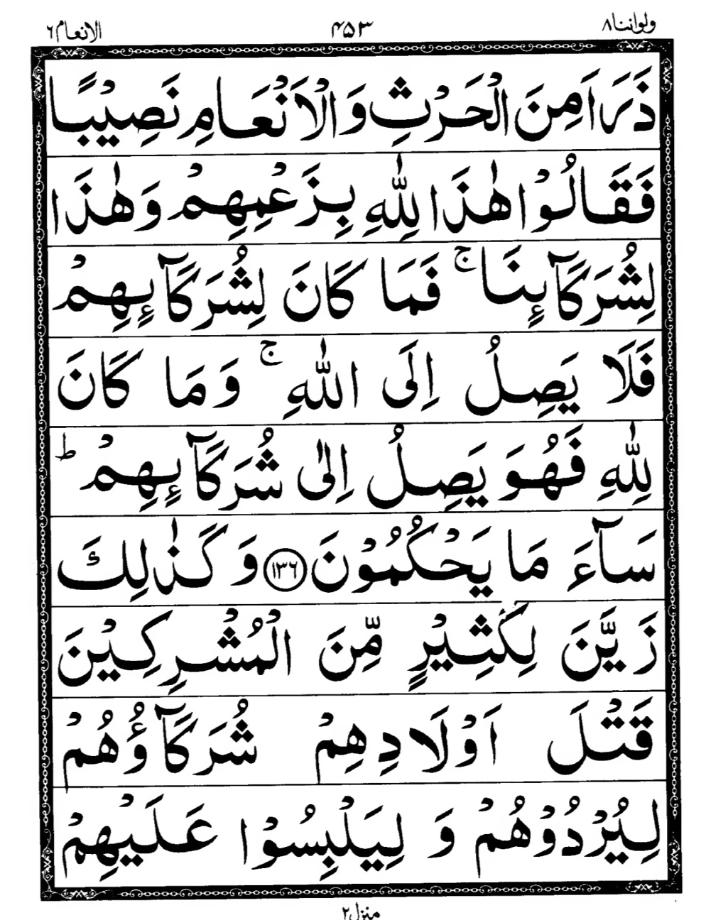 ولواننا ٨ ۴۵۳ الانعام ٦
ذَرَاَ مِنَ الْحَرْثِ وَالْاَنْعَامِ نَصِيْبًا
فَقَالُوْا هٰذَا لِلّٰهِ بِزَعْمِهِمْ وَهٰذَا
لِشُرَكَآئِنَا ۚ فَمَا كَانَ لِشُرَكَآئِهِمْ
فَلَا يَصِلُ اِلَى اللّٰهِ ۚ وَمَا كَانَ
لِلّٰهِ فَهُوَ يَصِلُ اِلٰى شُرَكَآئِهِمْ ؕ
سَآءَ مَا يَحْكُمُوْنَ ﴿۱۳۶﴾ وَكَذٰلِكَ
زَيَّنَ لِكَثِيْرٍ مِّنَ الْمُشْرِكِيْنَ
قَتْلَ اَوْلَادِهِمْ شُرَكَآؤُهُمْ
لِيُرْدُوْهُمْ وَ لِيَلْبِسُوْا عَلَيْهِمْ
منزل ٢